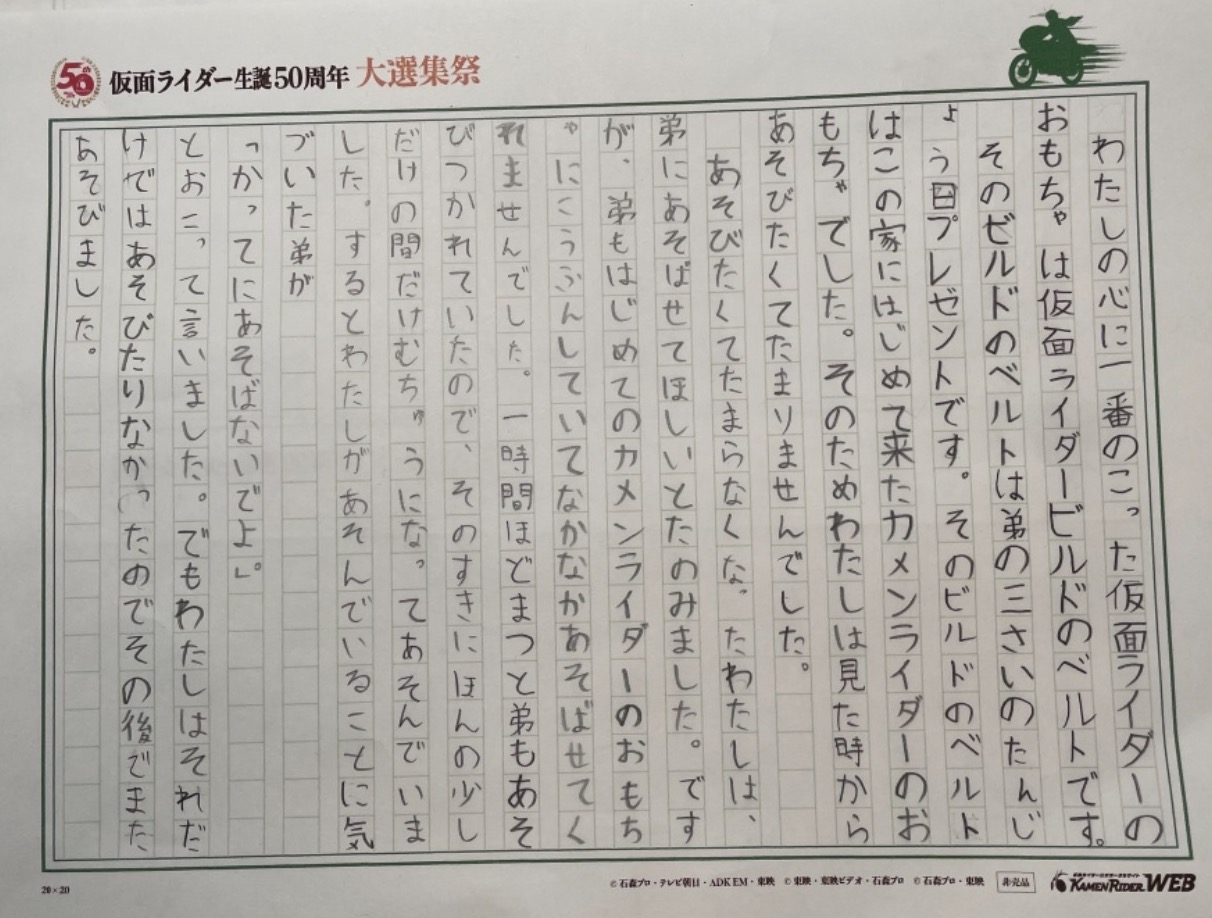 50th
仮面ライダー生誕50周年 大選集祭
わたしの心に一番のこった仮面ライダーの
おもちゃは仮面ライダービルドのベルトです。
そのゼルドのベルトは弟の三さいのたんじ
ょう日プレゼントです。そのビルドのベルト
はこの家にはじめて来たカメンライダーのお
もちゃでした。そのためわたしは見た時から
あそびたくてたまりませんでした。
あそびたくてたまらなくなったわたしは、
弟にあそばせてほしいとたのみました。です
が、弟もはじめてのカメンライダーのおもち
ゃにこうふんしていてなかなかあそばせてく
れませんでした。一時間ほどまつと弟もあそ
びつかれていたので、そのすきにほんの少し
だけの間だけむちゅうになってあそんでいま
した。するとわたしがあそんでいることに気
づいた弟が
「かってにあそばないでよ」。
とおこって言いました。でもわたしはそれだ
けではあそびたりなかったのでその後でまた
あそびました。
20×20
©石森プロ・テレビ朝日・ADK EM・東映 ©東映・東映ビデオ・石森プロ ©石森プロ・東映
非売品
KAMEN RIDER WEB